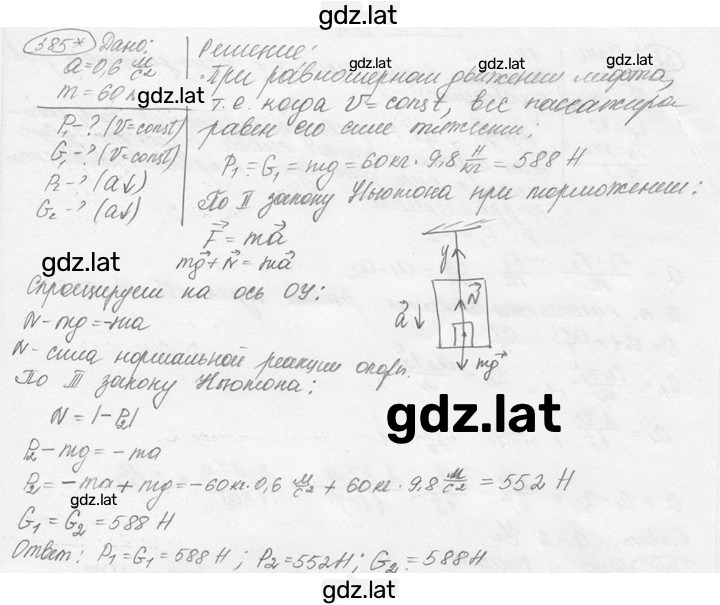 gdz.lat
385* Дано:
a=0,6 м/с²
m=60 кг
gdz.lat
P₁-? (v=const)
G₁-? (v=const)
P₂-? (a↓)
G₂-? (a↓)
Решение:
При равномерном движении лифта,
т.е. когда v=const, вес пассажира
равен его силе тяжести:
gdz.lat
P₁=G₁=mg=60кг·9,8 Н/кг=588 Н
По II закону Ньютона при торможении:
F⃗=ma⃗
mg⃗+N⃗=ma⃗
gdz.lat
Спроецируем на ось OY:
N-mg=-ma
N-сила нормальной реакции опоры.
По III закону Ньютона:
N=|-P₂|
P₂-mg=-ma
P₂=-ma+mg=-60кг·0,6 м/с²+60кг·9,8 м/с²=552 Н
G₁=G₂=588 Н
Ответ: P₁=G₁=588 Н; P₂=552Н; G₂=588Н
y
N⃗
a⃗
mg⃗
gdz.lat
gdz.lat
gdz.lat
gdz.lat